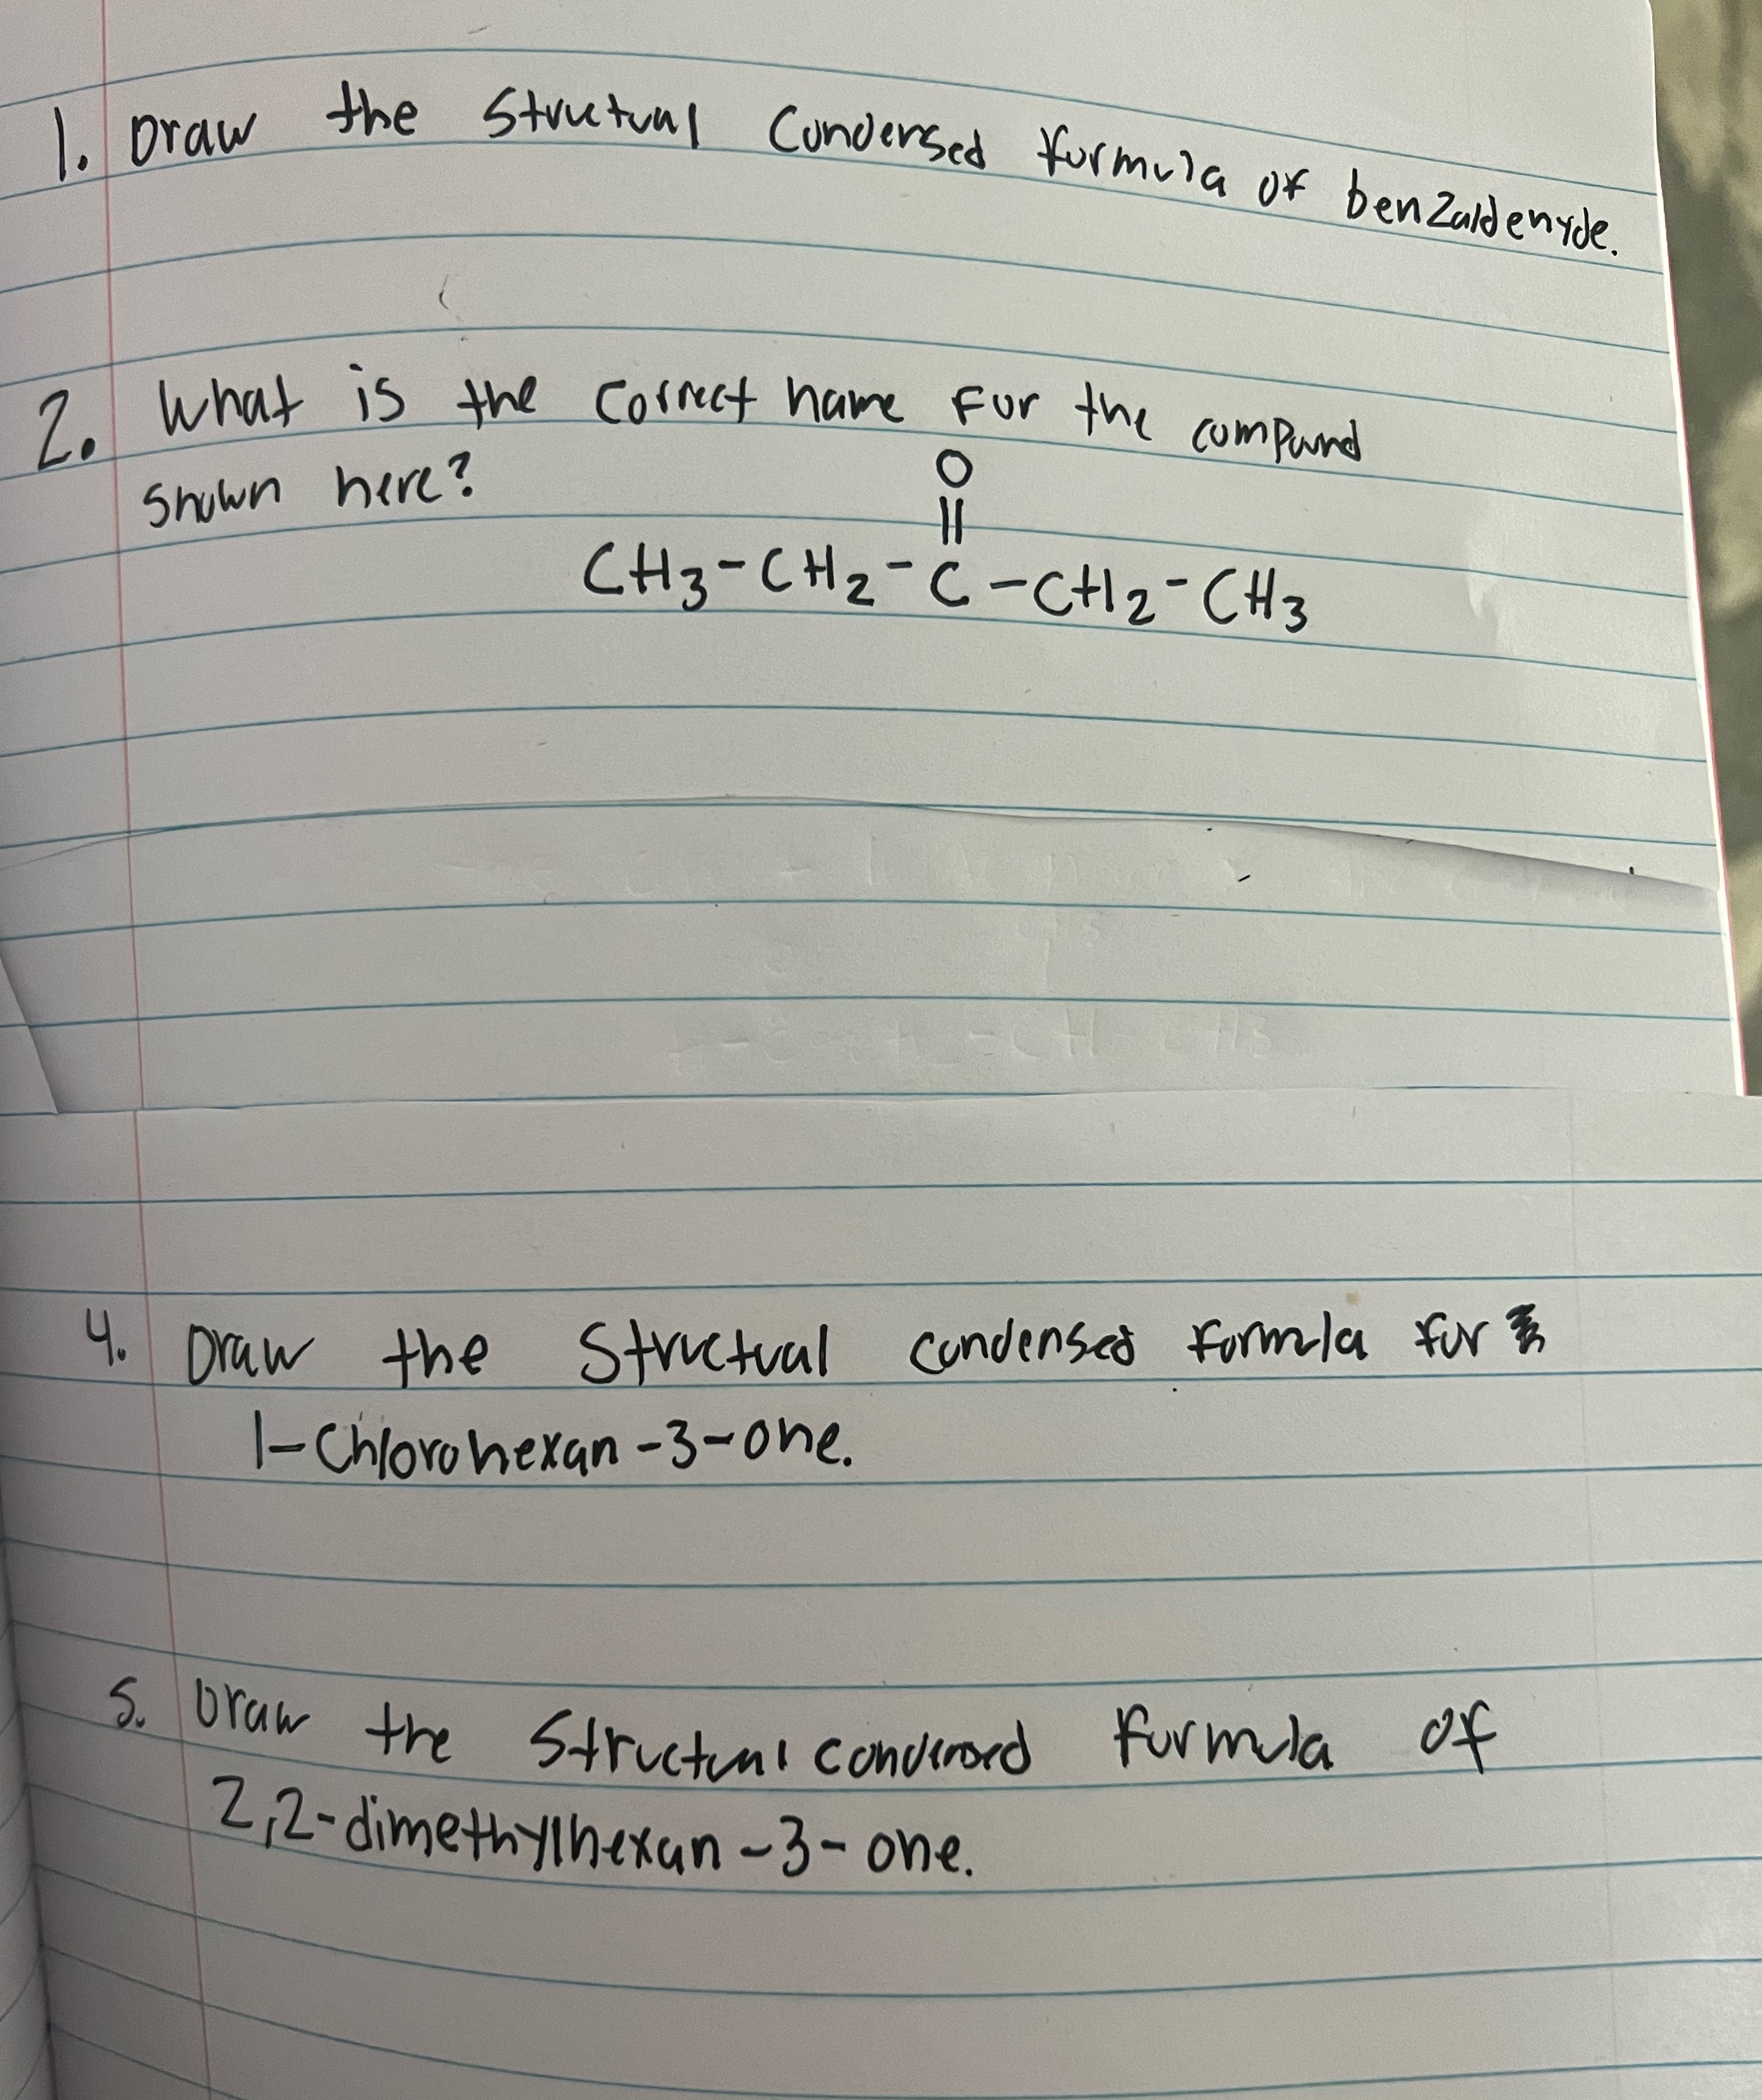 1. Draw the Structual Condensed formula of benzaldehyde.
2. What is the correct name for the compound
shown here?
O
||
CH3-CH2-C-CH2-CH3
4. Draw the Structual condensed formula for
1-Chlorohexan-3-one.
5. Draw the Structual condensed formula of
2,2-dimethylhexan-3-one.